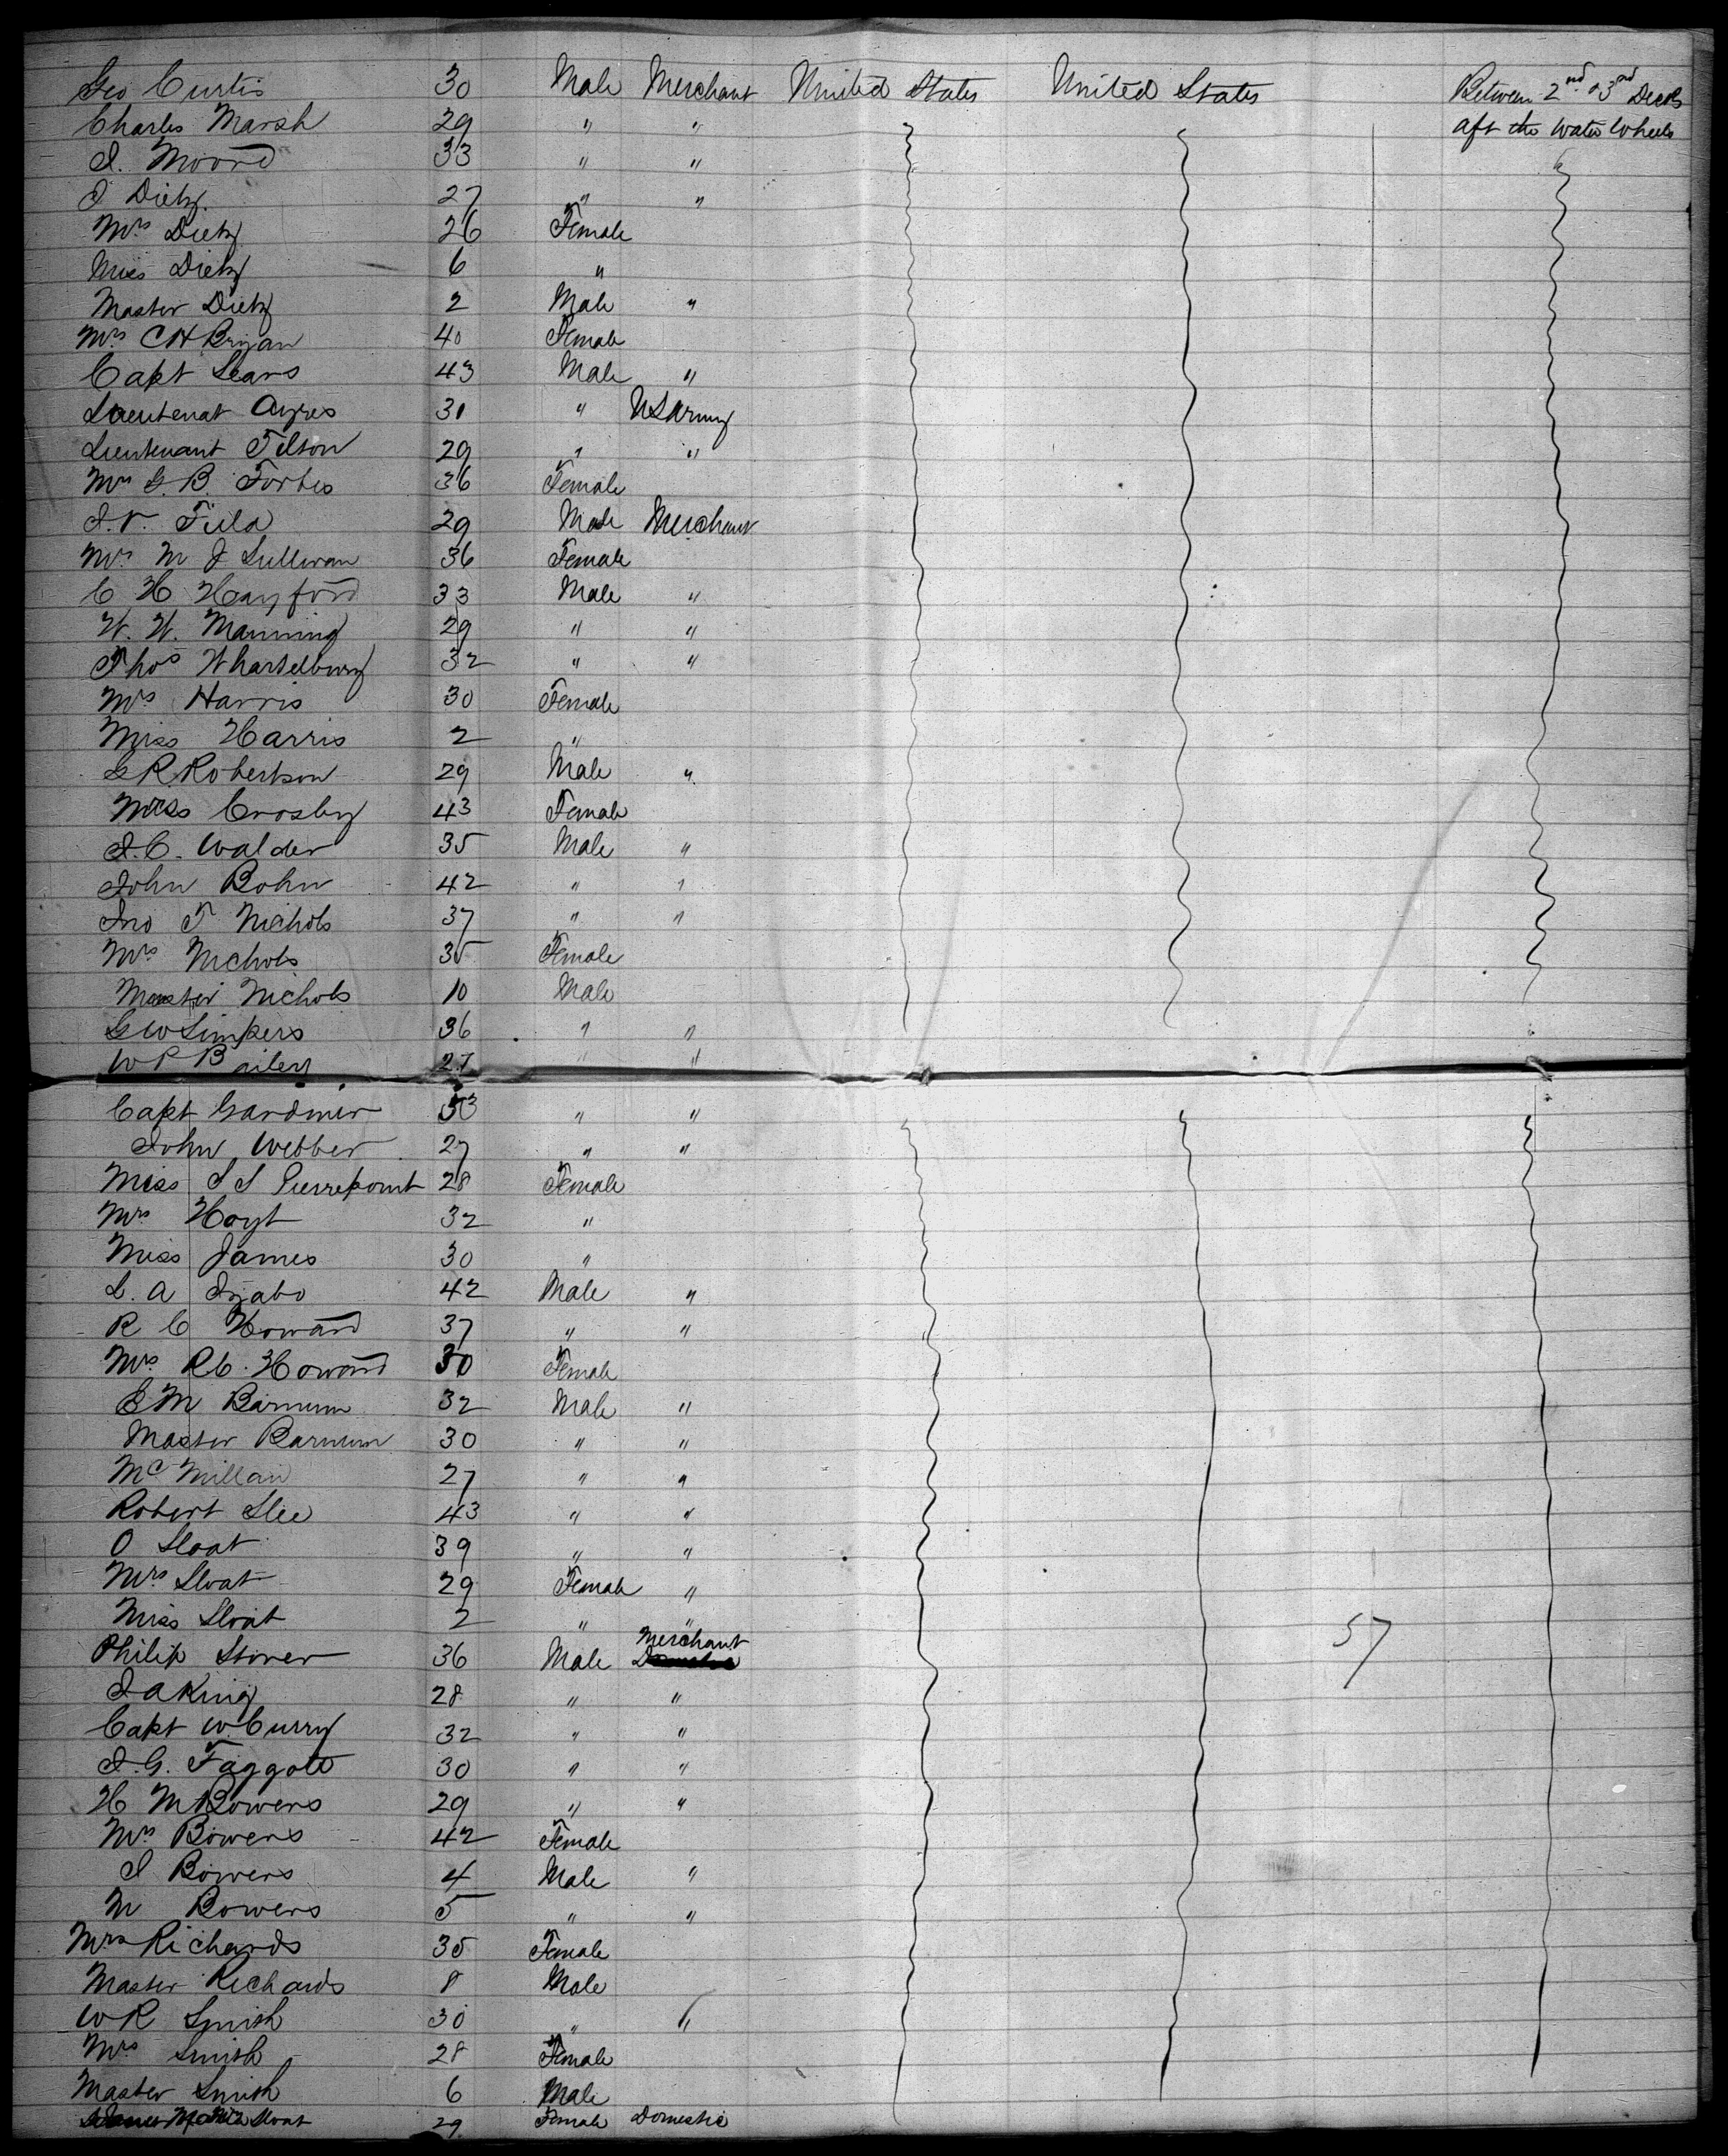 Geo Curtis 30 Male Merchant United States United States Between 2nd & 3rd Decks
Charles Marsh 29 " " aft the water wheels
J. Moore 33 " "
J Dietz 27 " "
Mrs Dietz 26 Female
Miss Dietz 6 "
Master Dietz 2 Male "
Mrs C H Bryan 40 Female
Capt Sears 43 Male "
Lieutenat Ayres 31 " U S Army
Lieutenant Tilson 29 " "
Mrs G. B. Forbes 36 Female
J. V. 29 Male Merchant
Mrs M J Sullivan 36 Female
C H Hayford 33 Male "
W. W. Manning 29 " "
Thos 32 " "
Mrs Harris 30 Female
Miss Harris 2 "
G R Robertson 29 Male "
Miss Crosby 43 Female
J. C. Walder 35 Male "
John Bohn 42 " "
Jno T Nichols 37 " "
Mrs Nichols 35 Female
Master Nichols 10 Male
G W Simpers 36 " "
W P Bailey 27 " "
Capt Gardiner 53 " "
John Webber 27 " "
Miss S S Pierrepoint 28 Female
Mrs Hoyt 32 "
Miss James 30 "
L. A 42 Male "
R C Howard 37 " "
Mrs R C. Howard 30 Female
E M Barnum 32 Male "
Master Barnum 30 " "
Mc Millan 27 " "
Robert Slee 43 " "
O Sloat 39 " "
Mrs Sloat 29 Female "
Miss Sloat 2 " "
Merchant
Philip Stoner 36 Male 57
J A King 28 " "
Capt W. Curry 32 " "
J. G. Faggott 30 " "
H M Bowers 29 " "
Mrs Bowers 42 Female
J Bowers 4 Male "
M Bowers 5 " "
Mrs Richards 35 Female
Master Richards 8 Male
W R Smith 30 " "
Mrs Smith 28 Female
Master Smith 6 Male
Sloat 29 Female Domestic